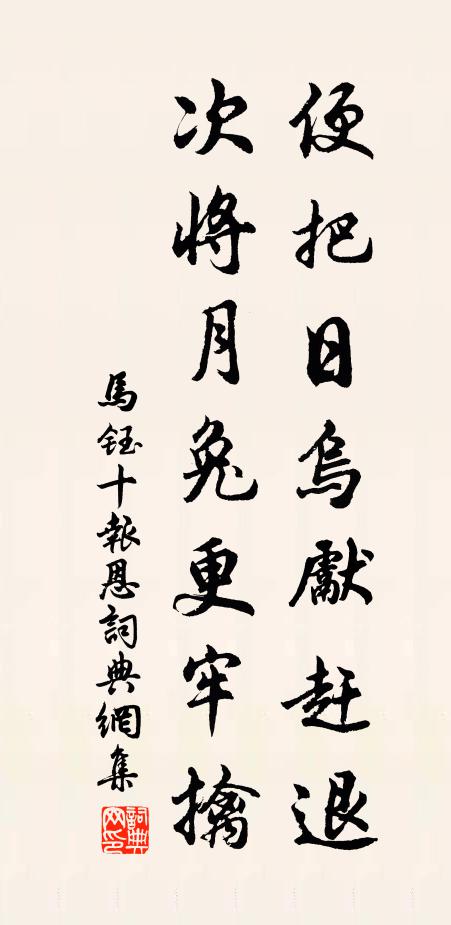 便把日烏獻赶退
次將月兔更牢擒
馬鈺十報恩詞典網集
詞典網印